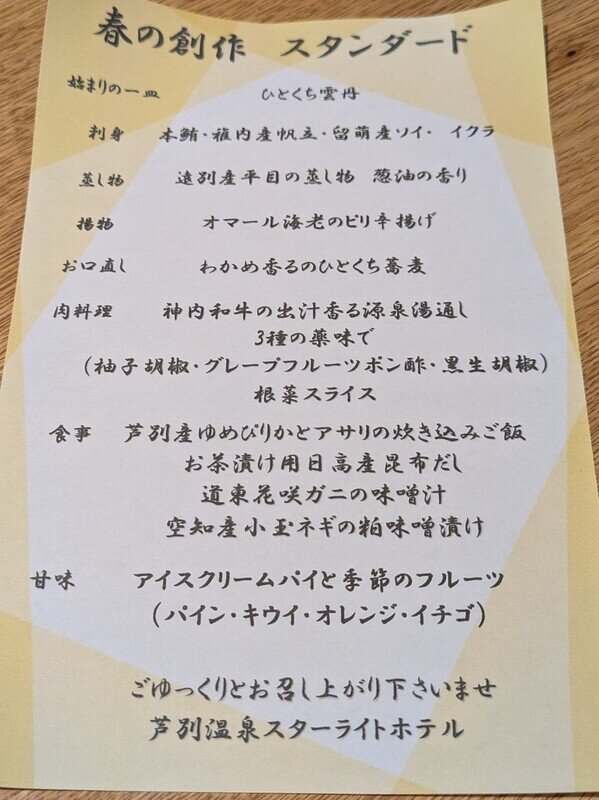 春の創作 スタンダード
始まりの一皿 ひとくち雲丹
刺身 本鮪・稚内産帆立・留萌産ソイ・ イクラ
蒸し物 遠別産平目の蒸し物 葱油の香り
揚物 オマール海老のピリ辛揚げ
お口直し わかめ香るのひとくち蕎麦
肉料理 神内和牛の出汁香る源泉湯通し
3種の薬味で
(柚子胡椒・グレープフルーツポン酢・黒生胡椒)
根菜スライス
食事 芦別産ゆめぴりかとアサリの炊き込みご飯
お茶漬け用日高産昆布だし
道東花咲ガニの味噌汁
空知産小玉ネギの粕味噌漬け
甘味 アイスクリームパイと季節のフルーツ
(パイン・キウイ・オレンジ・イチゴ)
ごゆっくりとお召し上がり下さいませ
芦別温泉スターライトホテル